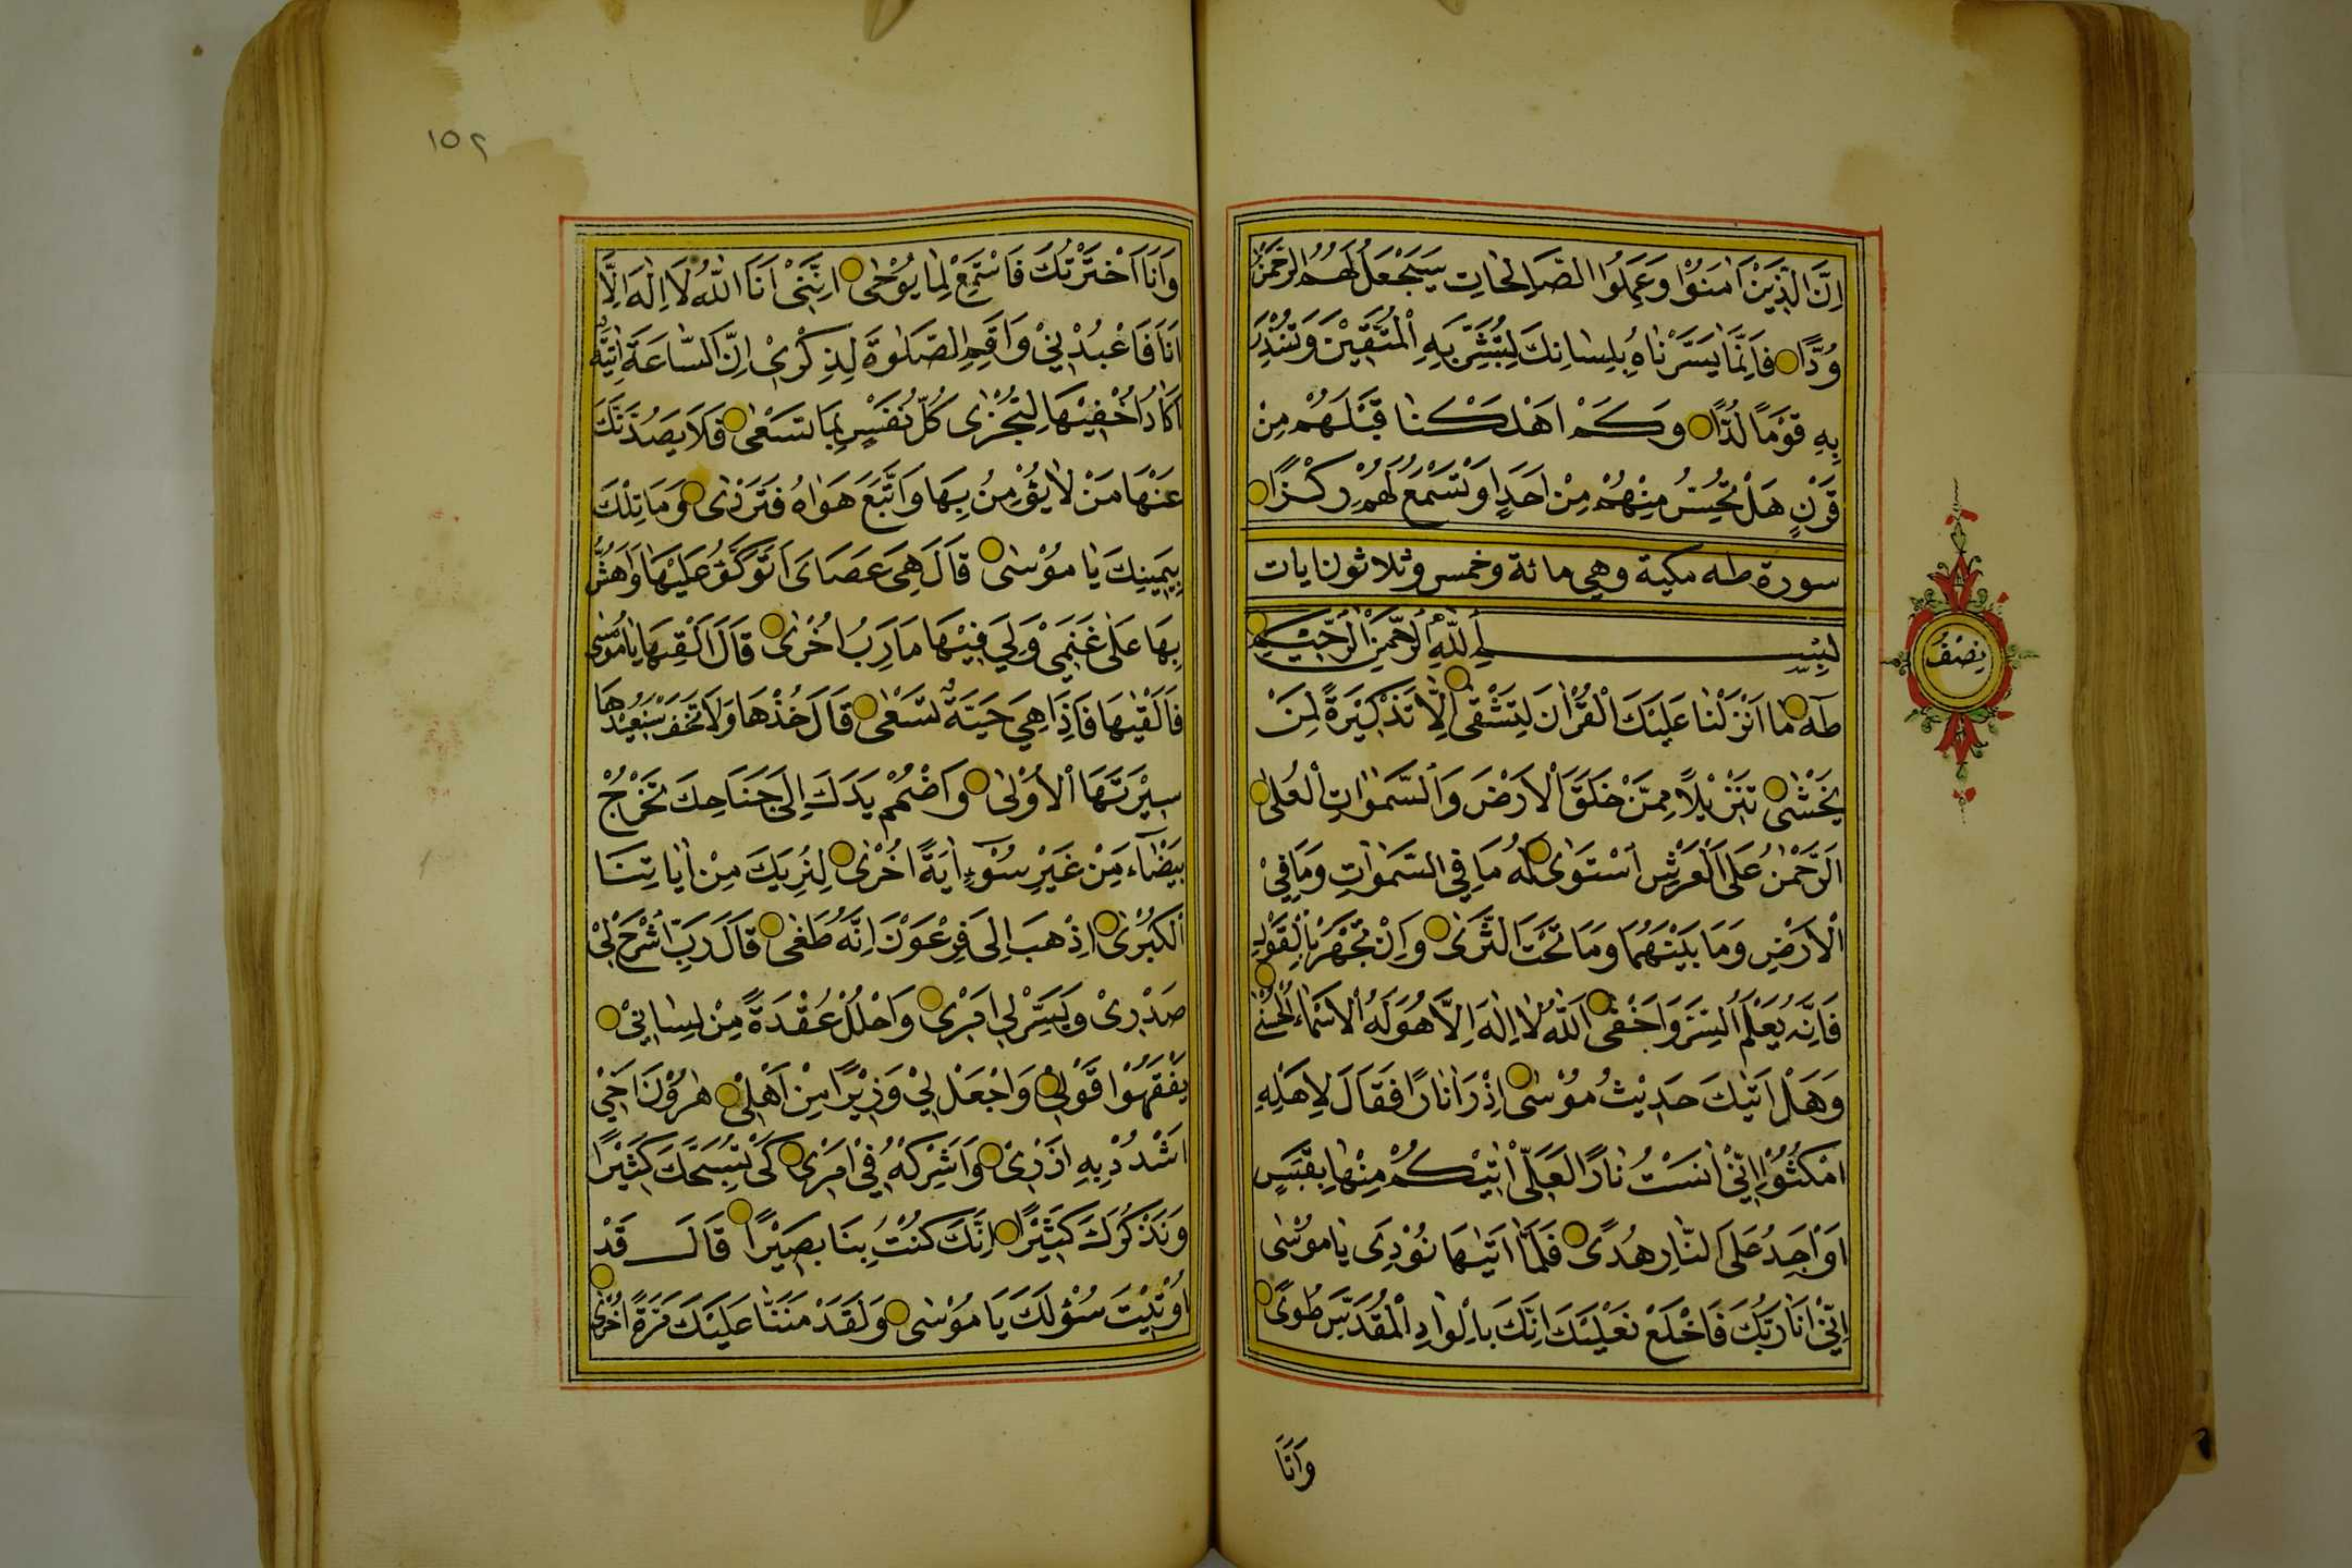 اِنَّ الَّذِيْنَ اٰمَنُوْا وَعَمِلُوا الصَّالِحَاتِ سَيَجْعَلُ لَهُمُ الرَّحْمٰنُ
وُدًّا فَاِنَّمَا يَسَّرْنَاهُ بِلِسَانِكَ لِتُبَشِّرَ بِهِ الْمُتَّقِيْنَ وَتُنْذِرَ
بِهِ قَوْمًا لُدًّا وَكَمْ اَهْلَكْنَا قَبْلَهُمْ مِنْ
قَرْنٍ هَلْ تُحِسُّ مِنْهُمْ مِنْ اَحَدٍ اَوْ تَسْمَعُ لَهُمْ رِكْزًا
سورة طه مكية وهي مائة وخمس وثلاثون ايات
نصف
بِسْمِ اللّٰهِ الرَّحْمٰنِ الرَّحِيْمِ
طٰهٰ مَا اَنْزَلْنَا عَلَيْكَ الْقُرْاٰنَ لِتَشْقٰى اِلَّا تَذْكِرَةً لِمَنْ
يَخْشٰى تَنْزِيْلًا مِمَّنْ خَلَقَ الْاَرْضَ وَالسَّمٰوَاتِ الْعُلٰى
اَلرَّحْمٰنُ عَلَى الْعَرْشِ اسْتَوٰى لَهُ مَا فِي السَّمٰوَاتِ وَمَا فِيْ
الْاَرْضِ وَمَا بَيْنَهُمَا وَمَا تَحْتَ الثَّرٰى وَاِنْ تَجْهَرْ بِالْقَوْلِ
فَاِنَّهُ يَعْلَمُ السِّرَّ وَاَخْفٰى اَللّٰهُ لَا اِلٰهَ اِلَّا هُوَ لَهُ الْاَسْمَاءُ الْحُسْنٰى
وَهَلْ اَتٰيكَ حَدِيْثُ مُوْسٰى اِذْ رَاٰ نَارًا فَقَالَ لِاَهْلِهِ
امْكُثُوْا اِنِّيْ اٰنَسْتُ نَارًا لَعَلِّيْ اٰتِيْكُمْ مِنْهَا بِقَبَسٍ
اَوْ اَجِدُ عَلَى النَّارِ هُدًى فَلَمَّا اَتٰيهَا نُوْدِيَ يَا مُوْسٰى
اِنِّيْ اَنَا رَبُّكَ فَاخْلَعْ نَعْلَيْكَ اِنَّكَ بِالْوَادِ الْمُقَدَّسِ طُوًى
وَاَنَا
١٥٢
وَاَنَا اخْتَرْتُكَ فَاسْتَمِعْ لِمَا يُوْحٰى اِنَّنِيْ اَنَا اللّٰهُ لَا اِلٰهَ اِلَّا
اَنَا فَاعْبُدْنِيْ وَاَقِمِ الصَّلٰوةَ لِذِكْرِيْ اِنَّ السَّاعَةَ اٰتِيَةٌ
اَكَادُ اُخْفِيْهَا لِتُجْزٰى كُلُّ نَفْسٍ بِمَا تَسْعٰى فَلَا يَصُدَّنَّكَ
عَنْهَا مَنْ لَا يُؤْمِنُ بِهَا وَاتَّبَعَ هَوَاهُ فَتَرْدٰى وَمَا تِلْكَ
بِيَمِيْنِكَ يَا مُوْسٰى قَالَ هِيَ عَصَايَ اَتَوَكَّؤُ عَلَيْهَا وَاَهُشُّ
بِهَا عَلٰى غَنَمِيْ وَلِيَ فِيْهَا مَاٰرِبُ اُخْرٰى قَالَ اَلْقِهَا يَا مُوْسٰى
فَاَلْقٰيهَا فَاِذَا هِيَ حَيَّةٌ تَسْعٰى قَالَ خُذْهَا وَلَا تَخَفْ سَنُعِيْدُهَا
سِيْرَتَهَا الْاُوْلٰى وَاضْمُمْ يَدَكَ اِلٰى جَنَاحِكَ تَخْرُجْ
بَيْضَاءَ مِنْ غَيْرِ سُوْءٍ اٰيَةً اُخْرٰى لِنُرِيَكَ مِنْ اٰيَاتِنَا
الْكُبْرٰى اِذْهَبْ اِلٰى فِرْعَوْنَ اِنَّهُ طَغٰى قَالَ رَبِّ اشْرَحْ لِيْ
صَدْرِيْ وَيَسِّرْ لِيْ اَمْرِيْ وَاحْلُلْ عُقْدَةً مِنْ لِسَانِيْ
يَفْقَهُوْا قَوْلِيْ وَاجْعَلْ لِيْ وَزِيْرًا مِنْ اَهْلِيْ هٰرُوْنَ اَخِيْ
اشْدُدْ بِهِ اَزْرِيْ وَاَشْرِكْهُ فِيْ اَمْرِيْ كَيْ نُسَبِّحَكَ كَثِيْرًا
وَنَذْكُرَكَ كَثِيْرًا اِنَّكَ كُنْتَ بِنَا بَصِيْرًا قَالَ قَدْ
اُوْتِيْتَ سُؤْلَكَ يَا مُوْسٰى وَلَقَدْ مَنَنَّا عَلَيْكَ مَرَّةً اُخْرٰى